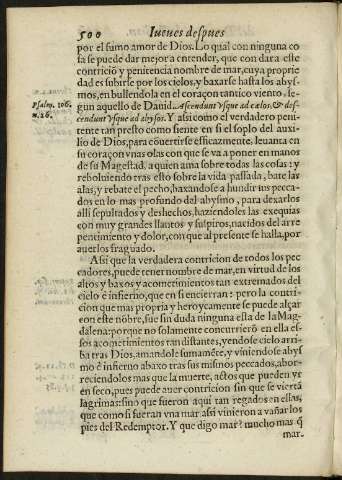 500 Iueues despues
por el sumo amor de Dios. Lo qual con ninguna co
sa se puede dar mejor a entender, que con dar a este
contriciō y penitencia nombre de mar, cuya proprie
dad es subirse por los cielos, y baxarse hasta los abys-
mos, en bullendola en el coraçon tantico viento, se-
Psalm. 106.
n. 26.
gun aquello de Dauid. Ascendunt vsque ad cælos, & des-
cendunt vsque ad abysos. Y asi como el verdadero peni-
tente tan presto como siente en si el soplo del auxi-
lio de Dios, para cōuertirse efficazmente, leuanta en
su coraçon vnas olas con que se va a poner en manos
de su Magestad, a quien ama sobre todas las cosas: y
reboluiendo tras esto sobre la vida passada, bate las
alas, y rebate el pecho, baxandose a hundir sus pecca-
dos en lo mas profundo del abysmo, para dexarlos
alli sepultados y deshechos, haziendoles las exequias
con muy grandes llantos y suspiros, nacidos del arre
pentimiento y dolor, con que al presente se halla, por
auerlos fraguado.
Asi que la verdadera contricion de todos los pec
cadores, puede tener nombre de mar, en virtud de los
altos y baxos y acometimientos tan extremados del
cielo è infierno, que en si encierran: pero la contri-
cion que mas propria y heroycamente se puede alçar
con este nōbre, sue sin duda ninguna esta de la Mag-
dalena: porque no solamente concurrierō en ella es-
sos acometimientos tan distantes, yendose cielo arri-
ba tras Dios, amandole sumamēte, y viniendose abys
mo è infierno abaxo tras sus mismos peccados, abor-
reciendolos mas que la muerte, actos que pueden yr
en seco, pues puede auer contricion sin que se viertā
lagrimas: sino que fueron aqui tan regados en ellas,
que como si fueran vna mar asi vinieron a vañar los
pies del Redemptor. Y que digo mar? mucho mas q̄
mar.